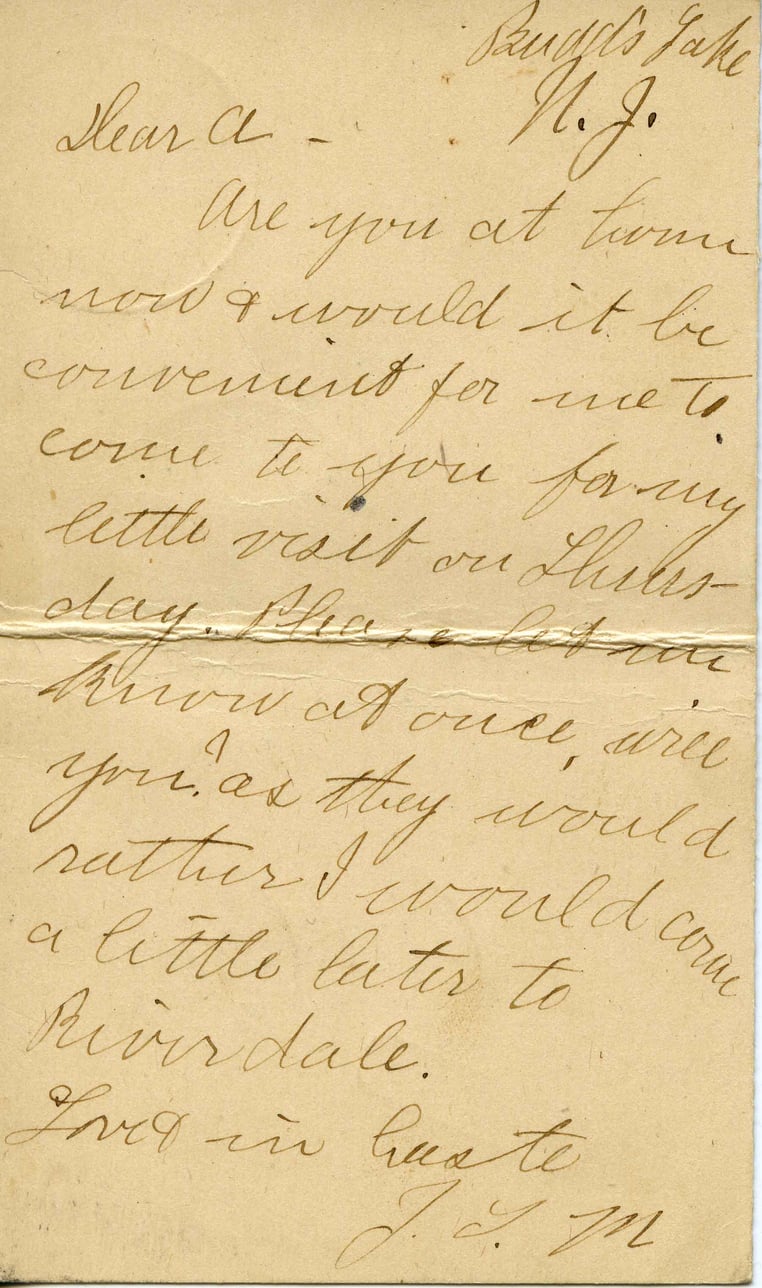 Budd's Lake
N. J.
Dear A -
Are you at home
now & would it be
convenient for me to
come to you for my
little visit on Thurs-
day. Please let me
know at once, will
you? as they would
rather I would come
a little later to
Riverdale.
Love & in haste
J. L. M